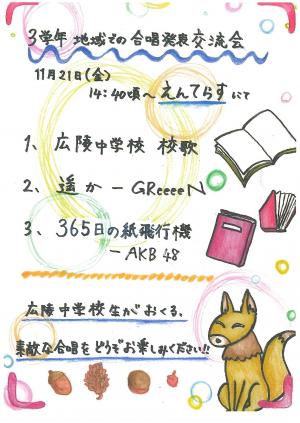 3学年 地域での合唱発表交流会
11月21日(金)
14:40頃〜えんてらすにて
1、広陵中学校 校歌
2、遥か－GReeeeN
3、365日の紙飛行機
－AKB48
広陵中学校生がおくる、
素敵な合唱をどうぞお楽しみください!!